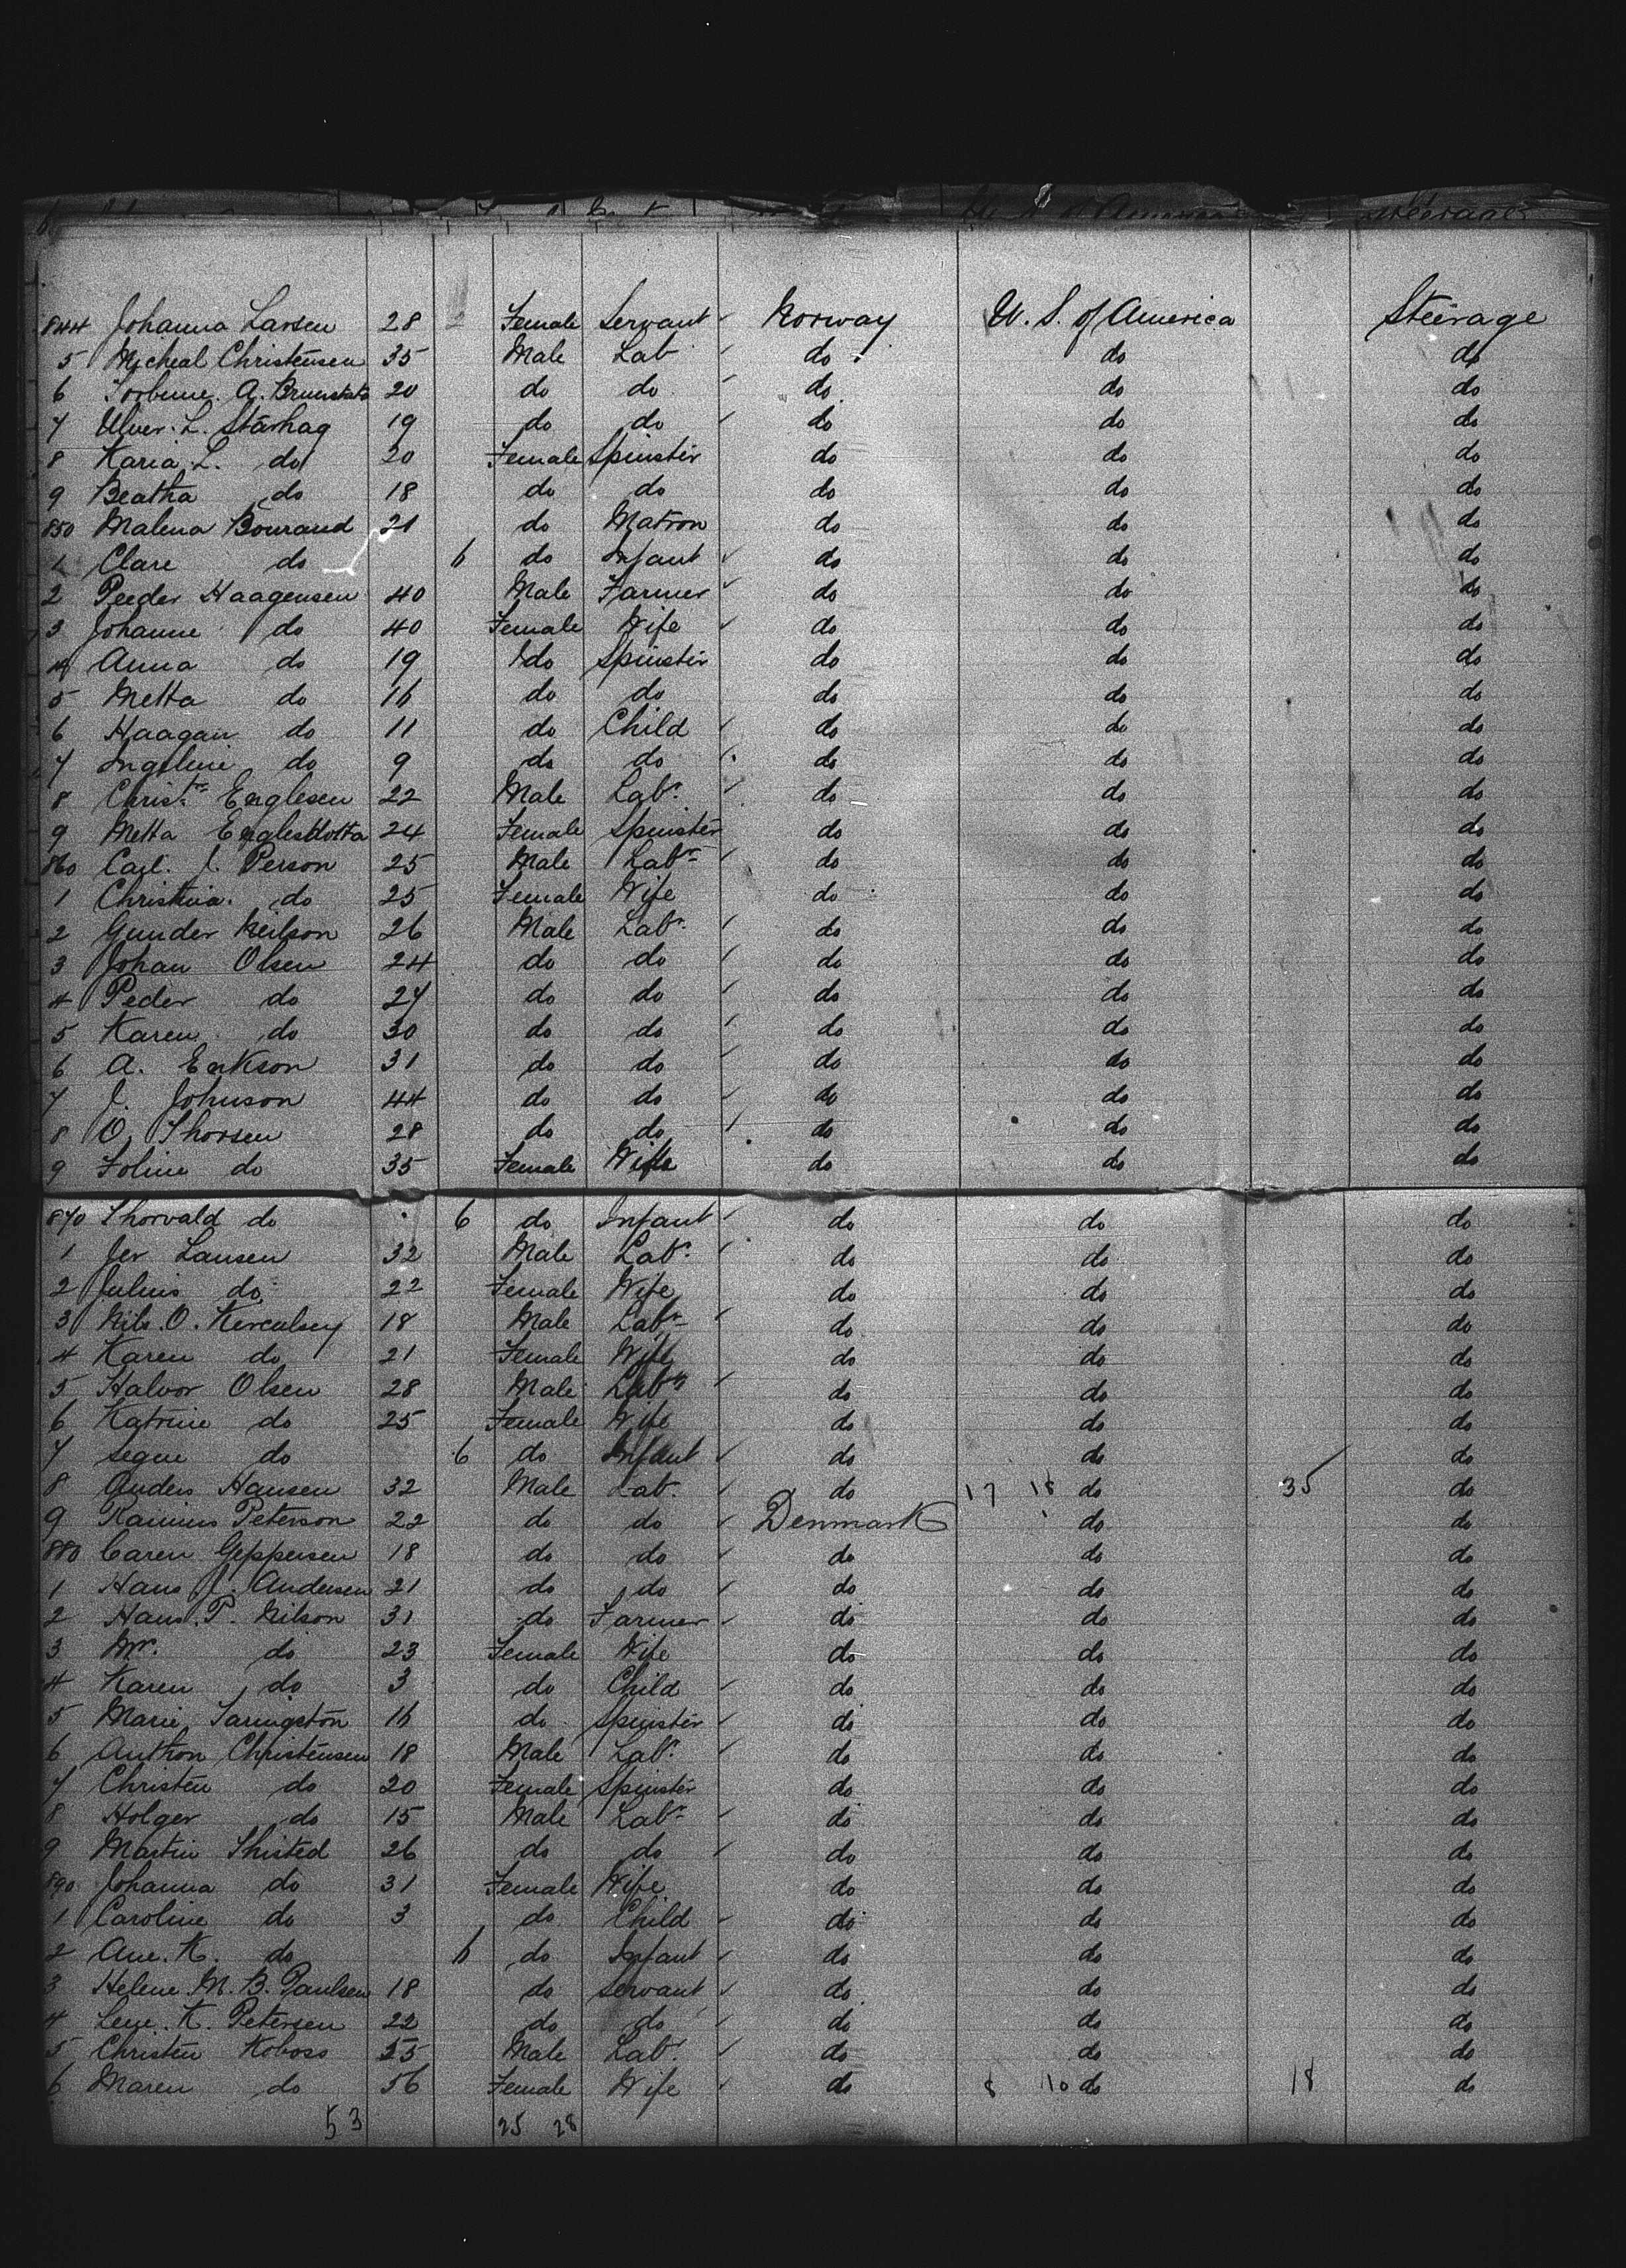 844 Johanna Larsen 28 Female Servant Norway U. S. of America Steerage
5 Micheal Christensen 35 Male Lab do do do
6 A. 20 do do do do do
7 Ulver. L. Starhag 19 do do do do do
8 Karia L. do 20 Female Spinster do do do
9 Beatha do 18 do do do do do
850 Malena 21 do Matron do do do
1 Clare do 6 do Infant do do do
2 Peeder Haagensen 40 Male Farmer do do do
3 Johanne do 40 Female Wife do do do
4 Anna do 19 do Spinster do do do
5 Metta do 16 do do do do do
6 Haagan do 11 do Child do do do
7 Ingeline do 9 do do do do do
8 Christn Englesen 22 Male Labr. do do do
9 Metta 24 Female Spinster do do do
860 Carl. J. Person 25 Male Labr do do do
1 Christina do 25 Female Wife do do do
2 Gunder Neilson 26 Male Labr. do do do
3 Johan Olsen 24 do do do do do
4 Peder do 27 do do do do do
5 Karen do 30 do do do do do
6 A. Erikson 31 do do do do do
7 J. Johnson 44 do do do do do
8 O. Thorsen 28 do do do do do
9 Foline do 35 Female Wife do do do
870 Thorvald do 6 do Infant do do do
1 Jer Lausen 32 Male Labr. do do do
2 Julius do 22 Female Wife do do do
3 Nils. O. 18 Male Labr do do do
4 Karen do 21 Female Wife do do do
5 Halvor Olsen 28 Male Labr do do do
6 Katrine do 25 Female Wife do do do
7 Segne do 6 do Infant do do do
8 Anders Hansen 32 Male Lab. do 17 18 do 35 do
9 Rasmus Peterson 22 do do Denmark do do
880 Caren Geppersen 18 do do do do do
1 Hans J. Andersen 21 do do do do do
2 Hans. P. Nilson 31 do Farmer do do do
3 Mr. do 23 Female Wife do do do
4 Karen do 3 do Child do do do
5 Marie 16 do Spinster do do do
6 Anthon Christensen 18 Male Labr. do do do
7 Christen do 20 Female Spinster do do do
8 Holger do 15 Male Labr do do do
9 Martin Thisted 26 do do do do do
890 Johanna do 31 Female Wife do do do
1 Caroline do 3 do Child do do do
2 Ane. K. do 6 do Infant do do do
3 Helene M. B. Paulsen 18 do Servant do do do
4 Lene. K. Petersen 22 do do do do do
5 Christen Koboso 25 Male Labr. do do do
6 Maren do 56 Female Wife do 8 10 do 18 do
53 25 28